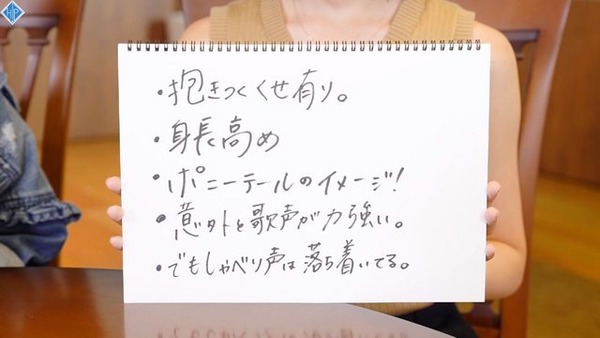 ・抱きつくくせ有り。
・身長高め
・ポニーテールのイメージ!
・意外と歌声が力強い。
・でもしゃべり声は落ち着いてる。